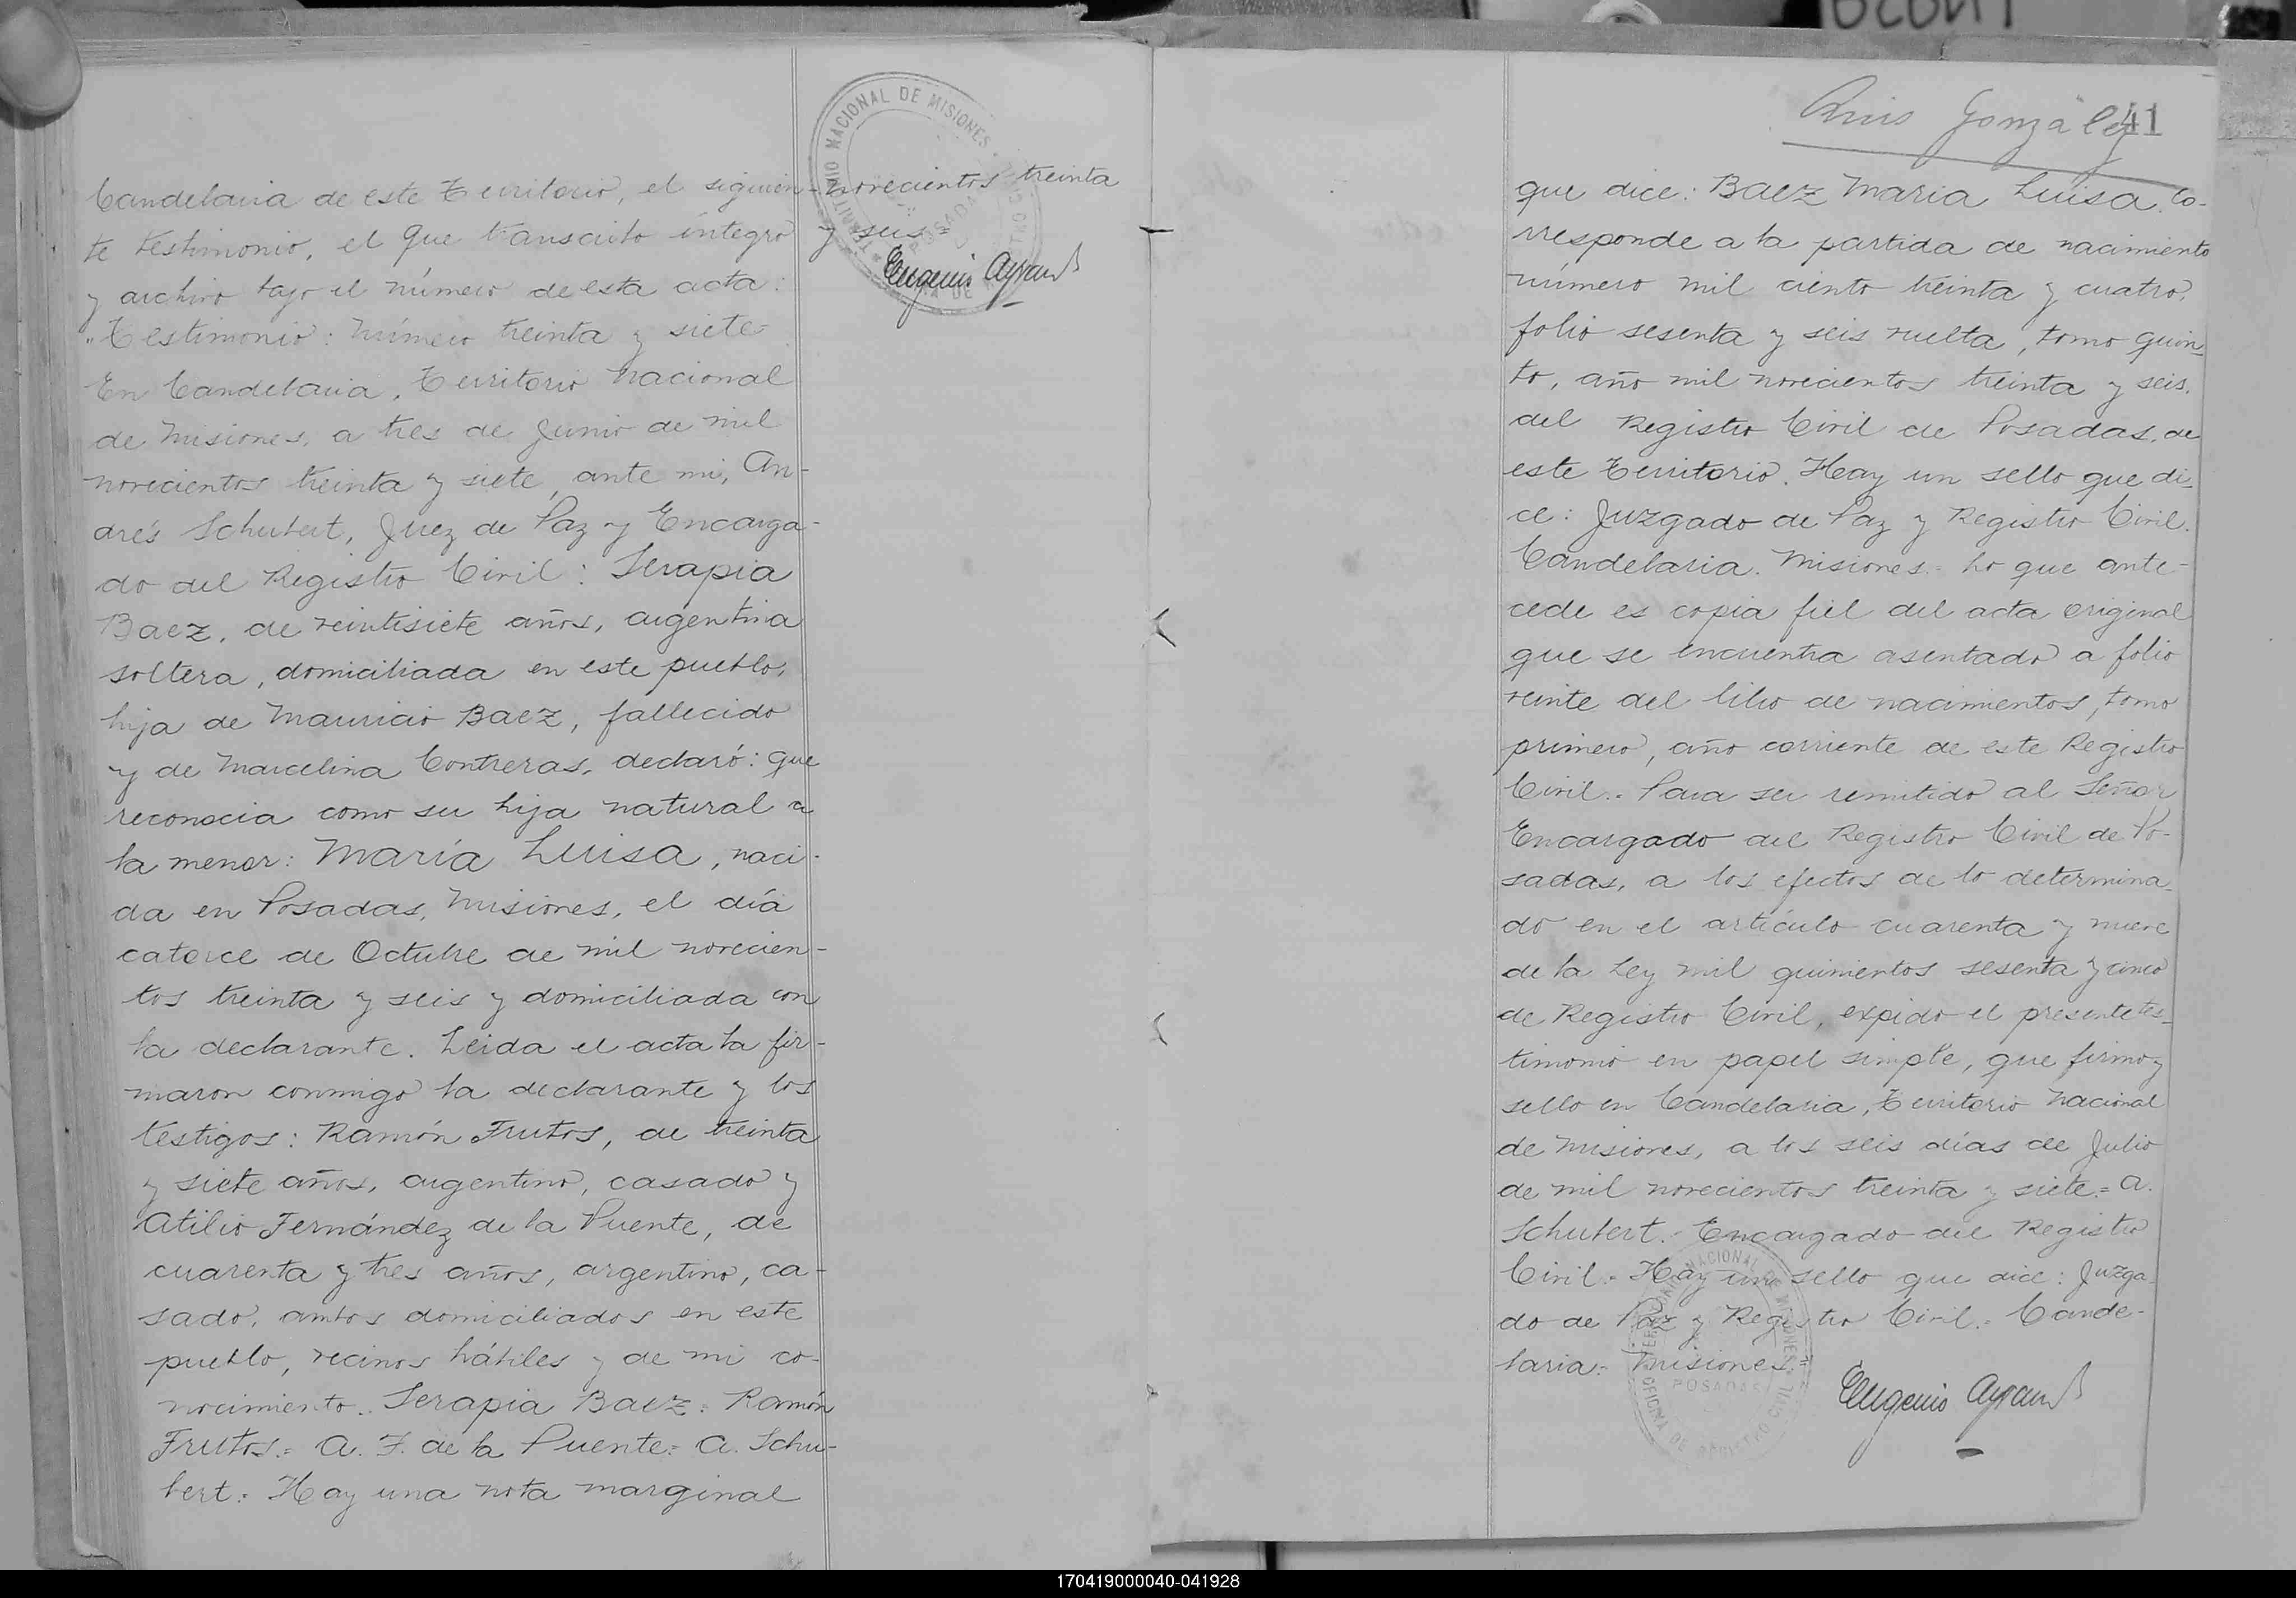 Candelaria de este Territorio, el siguien-
te testimonio, el que transcribo íntegro
y archivo bajo el número de esta acta:
"Testimonio: Número treinta y siete
En Candelaria, Territorio Nacional
de Misiones, a tres de Junio de mil
novecientos treinta y siete, ante mi, An-
drés Schubert, Juez de Paz y Encarga-
do del Registro Civil: Serapia
Baez, de veintisiete años, argentina
soltera, domiciliada en este pueblo,
hija de Mauricio Baez, fallecido
y de Marcelina Contreras, declaró: que
reconocia como su hija natural a
la menor: María Luisa, naci-
da en Posadas, Misiones, el día
catorce de Octubre de mil novecien-
tos treinta y seis y domiciliada con
la declarante. Leida el acta la fir-
maron conmigo la declarante y los
testigos: Ramón Frutos, de treinta
y siete años, argentino, casado y
Atilio Fernández de la Puente, de
cuarenta y tres años, argentino, ca-
sado, ambos domiciliados en este
pueblo, vecinos hábiles y de mi co-
nocimiento. Serapia Baez = Ramón
Frutos = A. F. de la Puente = A. Schu-
bert = Hay una nota marginal
TERRITORIO NACIONAL DE MISIONES
POSADAS
novecientos treinta
y seis =
Eugenio Ayraud
Luis González
41
que dice: Baez Maria Luisa. Co-
rresponde a la partida de nacimiento
número mil ciento treinta y cuatro,
folio sesenta y seis vuelta, tomo quin-
to, año mil novecientos treinta y seis,
del Registro Civil de Posadas, de
este Territorio. Hay un sello que di-
ce: Juzgado de Paz y Registro Civil.
Candelaria. Misiones = Lo que ante-
cede es copia fiel del acta original
que se encuentra asentado a folio
veinte del libro de nacimientos, tomo
primero, año corriente de este Registro
Civil = Para ser remitido al Señor
Encargado del Registro Civil de Po-
sadas, a los efectos de lo determina-
do en el artículo cuarenta y nueve
de la Ley mil quinientos sesenta y cinco
de Registro Civil, expido el presente tes-
timonio en papel simple, que firmo y
sello en Candelaria, Territorio Nacional
de Misiones, a los seis días de Julio
de mil novecientos treinta y siete = A.
Schubert = Encargado del Registro
Civil = Hay un sello que dice: Juzga-
do de Paz y Registro Civil = Cande-
laria = Misiones =
TERRITORIO NACIONAL DE MISIONES
POSADAS
OFICINA DE REGISTRO CIVIL
Eugenio Ayraud
170419000040-041928